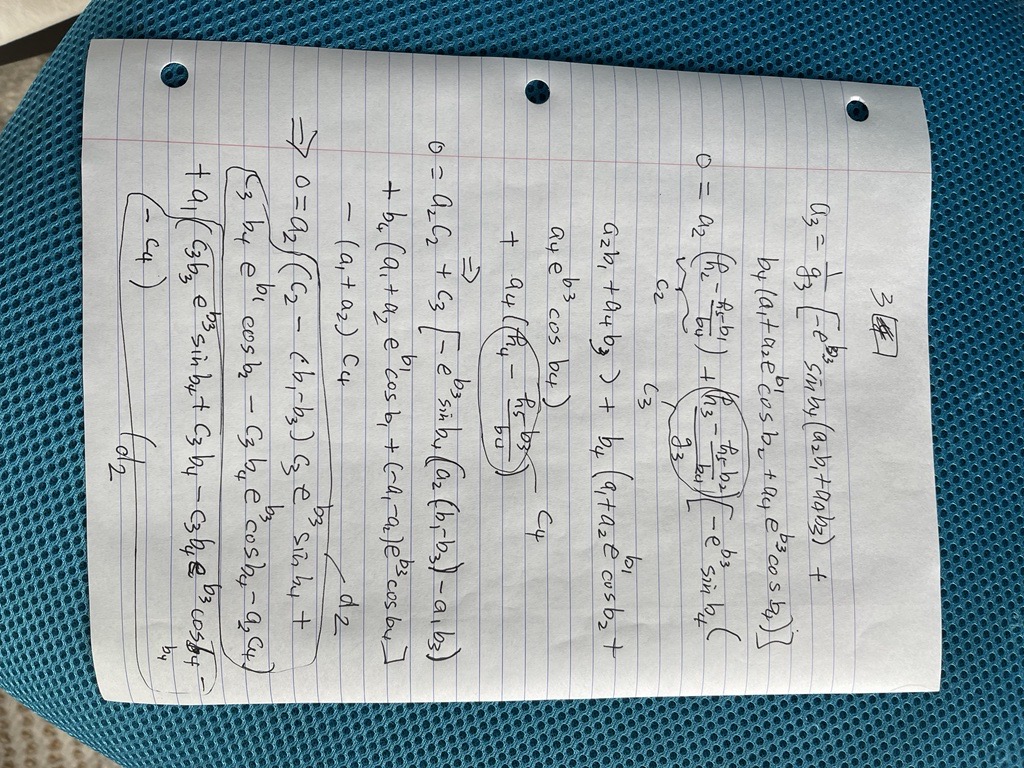 3
a₃ = 1/g₃ [-e^b₃ sin b₄ (a₂b₁+a₄b₃) +
b₄ (a₁+a₂e^b₁ cos b₂ + a₄ e^b₃ cos b₄)]
0 = a₂ (h₂ - h₅b₁/b₄) + (h₃ - h₅b₂/b₄)/g₃ [-e^b₃ sin b₄ (
c₂ c₃
a₂b₁ + a₄b₃ ) + b₄ (a₁+a₂e^b₁ cos b₂ +
a₄ e^b₃ cos b₄)
+ a₄ (h₄ - h₅b₃/b₄) c₄
⇒
0 = a₂c₂ + c₃ [-e^b₃ sin b₄ (a₂ (b₁-b₃) - a₁b₃)
+ b₄ (a₁+a₂ e^b₁ cos b₁ + (-a₁-a₂)e^b₃ cos b₄]
- (a₁+a₂) c₄ d₂
⇒ 0 = a₂ ((c₂ - (b₁-b₃) c₃ e^b₃ sin b₄ +
c₃ b₄ e^b₁ cos b₂ - c₃ b₄ e^b₃ cos b₄ - a₂c₄)
+ a₁ (c₃b₃ e^b₃ sin b₄ + c₃ b₄ - c₃b₄ e^b₃ cos b₄ -
b₄
- c₄ )
d₂